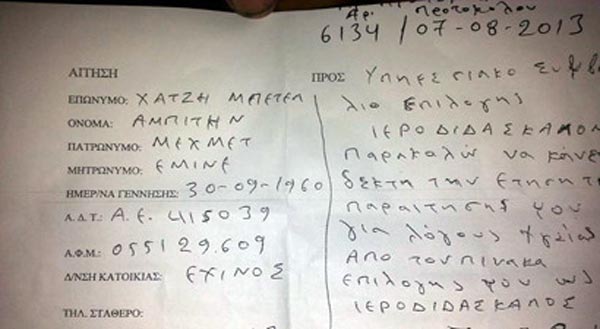 Αρ. Πρωτοκόλου
6134 / 07-08-2013
ΑΙΤΗΣΗ
ΕΠΩΝΥΜΟ: ΧΑΤΖΗ ΜΠΕΤΕΛ
ΟΝΟΜΑ: ΑΜΠΙΤΗΝ
ΠΑΤΡΩΝΥΜΟ: ΜΕΧΜΕΤ
ΜΗΤΡΩΝΥΜΟ: ΕΜΙΝΕ
ΗΜΕΡ/ΝΑ ΓΕΝΝΗΣΗΣ: 30-09-1960
Α.Δ.Τ.: Α.Ε. 415039
Α.Φ.Μ.: 055129.609
Δ/ΝΣΗ ΚΑΤΟΙΚΙΑΣ: ΕΧΙΝΟΣ
ΤΗΛ. ΣΤΑΘΕΡΟ:
ΠΡΟΣ Υπηρεσιακο Συμβου
λιο Επιλογης
ΙΕΡΟΔΙΔΑΣΚΑΛΟΝ
Παρακαλώ να κάνετε
δεκτη την ετηση τ
παραιτησης μου
για λόγους Υγείας
Απο τον πινακα
επιλογης μου ως
ΙΕΡΟΔΙΔΑΣΚΑΛΟΣ